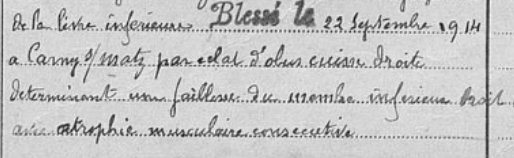 de la lèvre inférieure Blessé le 22 septembre 1914
a Canny s/ matz par eclat d'obus cuisse droite
determinant une faiblesse du membre inférieur droit
avec atrophie musculaire consécutive